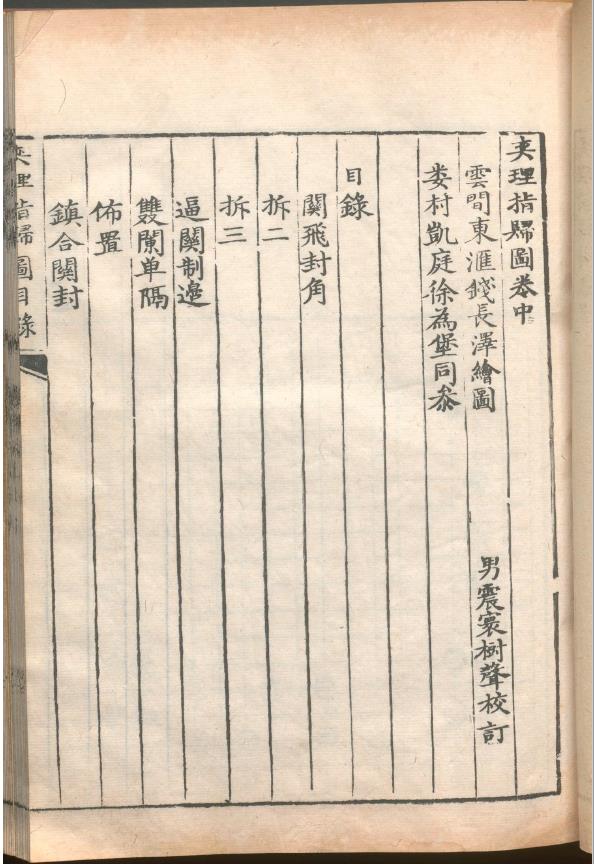 奕理指歸圖卷中
雲間東滙錢長澤繪圖
男震寰樹聲校訂
婁村凱庭徐為堡同叅
目錄
関飛封角
拆二
拆三
逼関制邉
雙闌单隔
佈置
鎮合関封
奕理指歸圖目錄